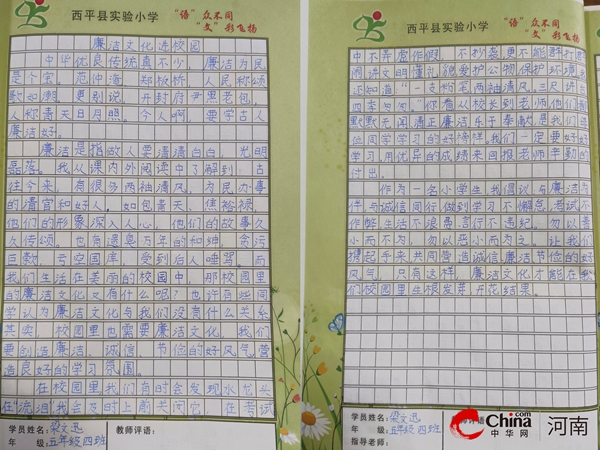 西平县实验小学
"语"众不同
"文"彩飞扬
廉洁文化进校园
中华优良传统真不少,廉洁为民
是个宝。范仲淹、郑板桥,人民称颂
歌如潮。更别说,开封府尹黑老包,
人称青天日月照。今个人啊,要学古人
廉洁好。
廉洁是指做人要清清白白,光明
磊落。我从课内外阅读中了解到:古
往今来,有很多两袖清风、为民办事
的清官和好人。如包青天、焦裕禄,
他们的形象深入人心,他们的故事久
久传颂。也有遗臭万年的和珅,贪污
巨款,亏空国库,受到后人唾骂。而
我们生活在美丽的校园中,那校园里
的廉洁文化又有什么呢?也许有些同
学认为廉洁文化与我们没有什么关系
其实,校园里也需要廉洁文化。我们
要创造廉洁、诚信、节俭的好风气,营
造良好的学习氛围。
在校园里,我们有时会发现水龙头
在"流泪"我会及时上前关闭它,在考试
学员姓名:梁文迅
年 级:五年级四班
教师评语:
西平县实验小学
"语"众不同
"文"彩飞扬
中不弄虚作假,不抄袭更不能群打群
闹讲文明懂礼貌爱护公物保护环境
还知道"一支粉笔两袖清风,三尺讲台
四季
你看从校长到老师他们
默默无闻清正廉洁乐于奉献是我们每
位同学学习的好榜样。我们一定要好好
学习,用优异的成绩来回报老师辛勤的
付出。
作为一名小学生我倡议与廉洁为
伴与诚信同行做到学习不懈怠考试不
作弊生活不浪费言行不违纪。勿以善
小而不为,勿以恶小而为之。让我们
携起手来共同营造诚信廉洁节俭的好
风气,只有这样,廉洁文化才能在我
们校园里生根发芽开花结果。
学员姓名:梁文迅
年 级:五年级四班
教师评语:
指导老师:
China.com
中华网
河南